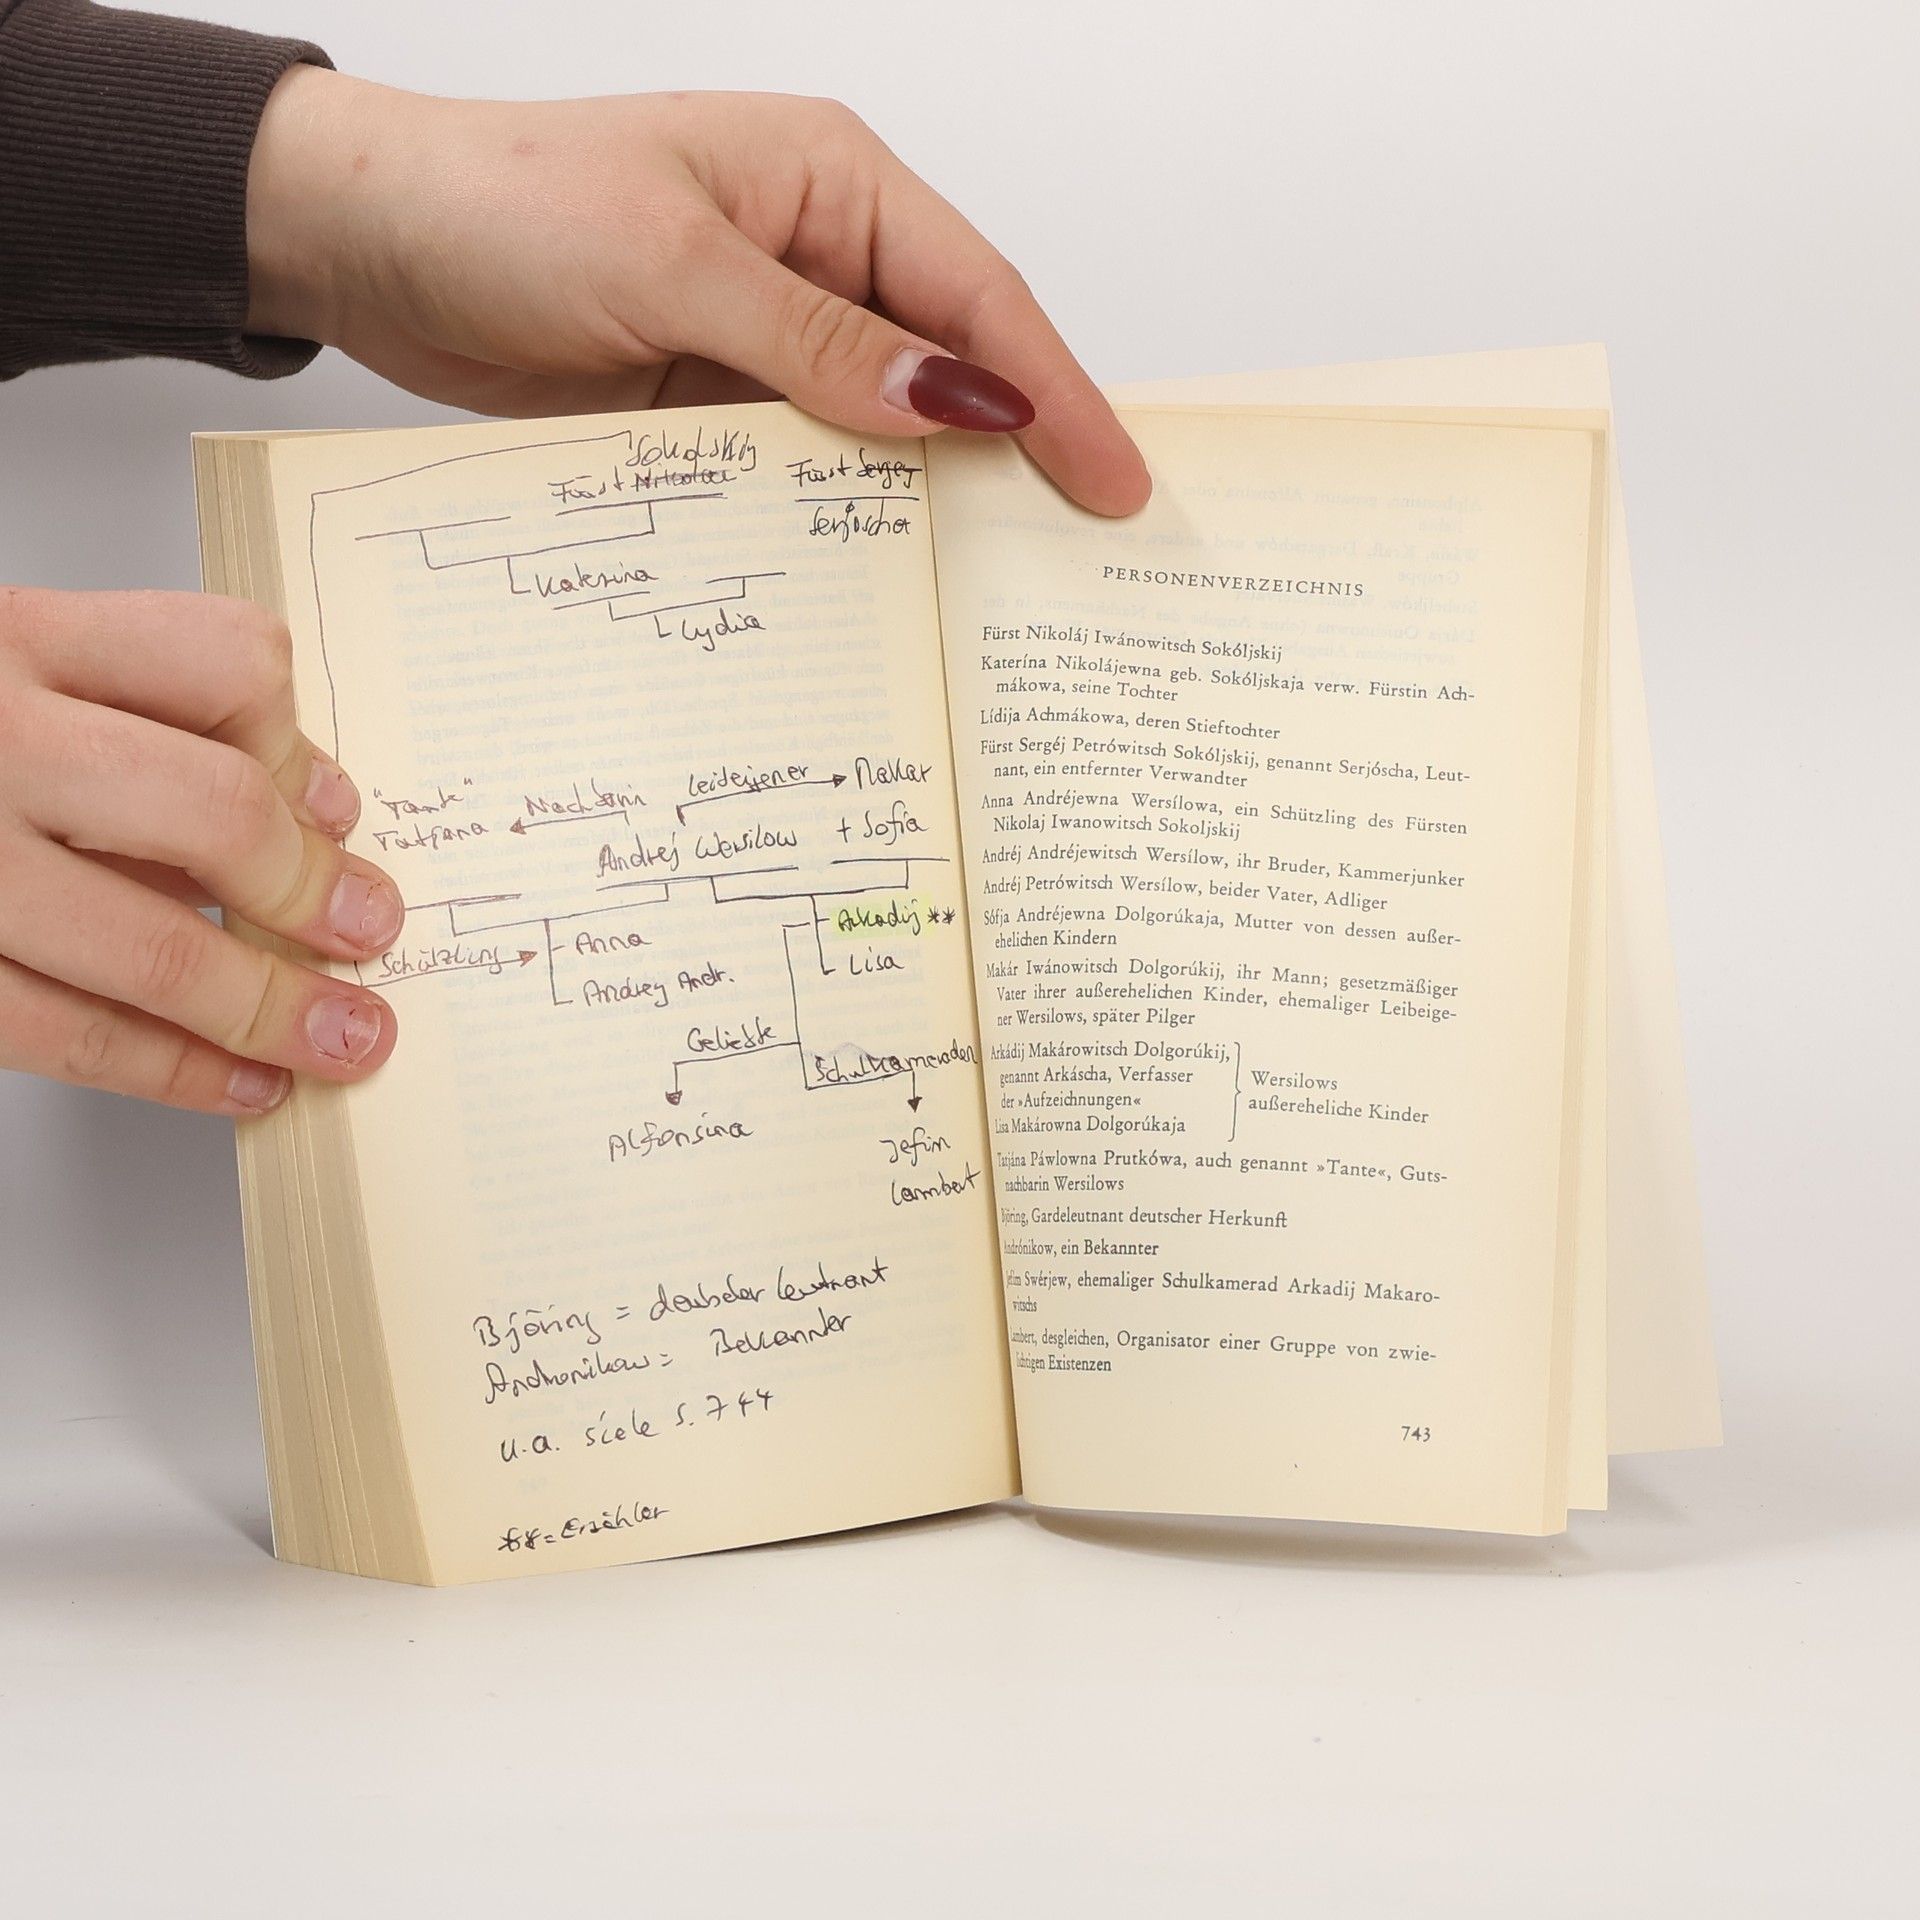 Sokolskij
Fürst Nikolai
Fürst Sergej
Serjoscha
Katerina
Lydia
"Tante"
Tatjana
Nachbarin
Leibeigener
Makar
Andrej Wersilow
+ Sofia
Arkadij **
Schützling
Anna
Lisa
Andrej Andr.
Geliebte
Schulkameraden
Alfonsina
Jefim
Lambert
Björing = deutscher Leutnant
Andronikow = Bekannter
u.a. siehe S. 744
** = Erzähler
PERSONENVERZEICHNIS
Fürst Nikoláj Iwánowitsch Sokóljskij
Katerína Nikolájewna geb. Sokóljskaja verw. Fürstin Ach-
mákowa, seine Tochter
Lídija Achmákowa, deren Stieftochter
Fürst Sergéj Petrówitsch Sokóljskij, genannt Serjóscha, Leut-
nant, ein entfernter Verwandter
Anna Andréjewna Wersílowa, ein Schützling des Fürsten
Nikolaj Iwanowitsch Sokoljskij
Andréj Andréjewitsch Wersílow, ihr Bruder, Kammerjunker
Andréj Petrówitsch Wersílow, beider Vater, Adliger
Sófja Andréjewna Dolgorúkaja, Mutter von dessen außer-
ehelichen Kindern
Makár Iwánowitsch Dolgorúkij, ihr Mann; gesetzmäßiger
Vater ihrer außerehelichen Kinder, ehemaliger Leibeige-
ner Wersilows, später Pilger
Arkádij Makárowitsch Dolgorúkij,
genannt Arkáscha, Verfasser
der »Aufzeichnungen«
Lisa Makárowna Dolgorúkaja
Wersilows
außereheliche Kinder
Tatjána Páwlowna Prutkówa, auch genannt »Tante«, Guts-
nachbarin Wersilows
Björing, Gardeleutnant deutscher Herkunft
Andrónikow, ein Bekannter
Jefim Swérjew, ehemaliger Schulkamerad Arkadij Makaro-
witschs
Lambert, desgleichen, Organisator einer Gruppe von zwie-
lichtigen Existenzen
743